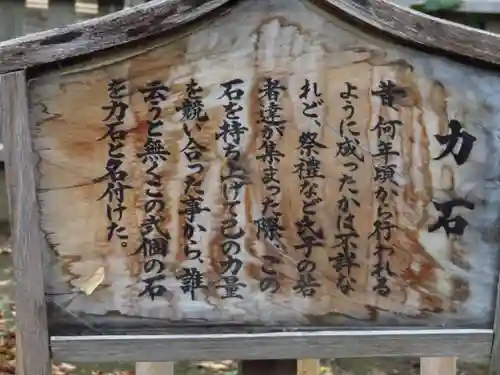 力石
昔何年頃から行われる
ように成ったかは不詳な
れど、祭禮など氏子の若
者達が集まった際、この
石を持ち上げて己の力量
を競い合った事から、誰
云うと無くこの弐個の石
を力石と名付けた。